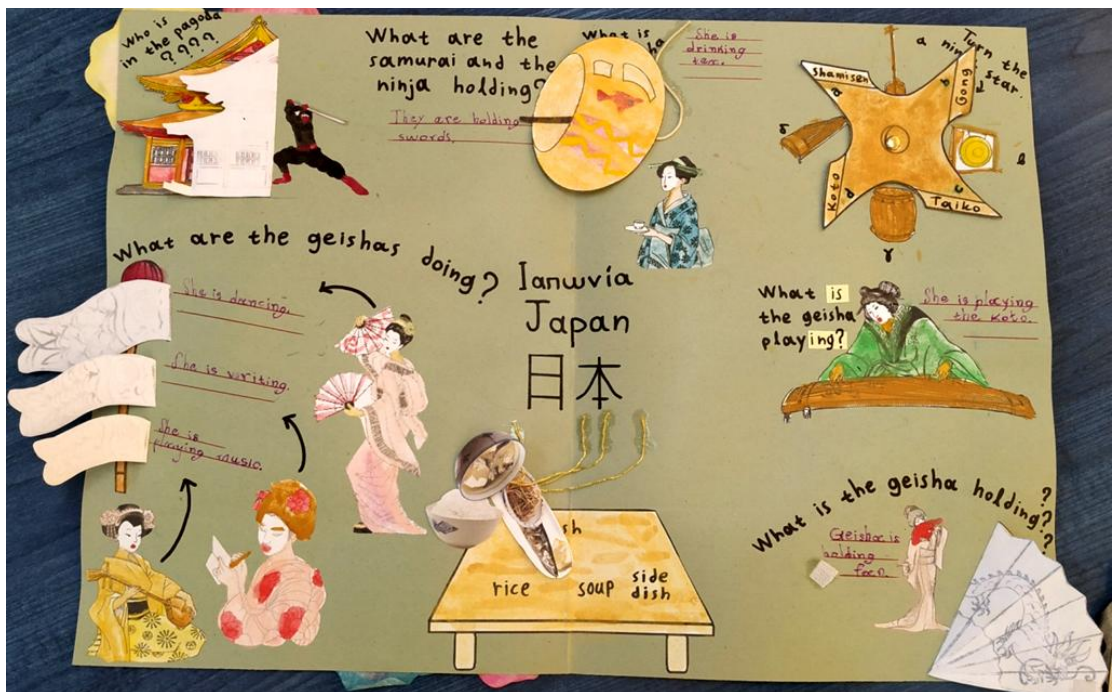 Who is
in the pagoda
????
What are the
samurai and the
ninja holding?
They are holding
swords.
What is
She is
drinking
tea.
Turn the
a nin
star.
Shamisen
a
Gong
b
Koto
d
Taiko
c
δ
β
γ
What are the geishas doing?
She is dancing.
She is writing.
She is
playing music.
Ιαπωνία
Japan
日本
What is
the geisha
playing?
She is playing
the koto.
rice
soup
side
dish
sh
What is the geisha holding?
?
?
Geisha is
holding
fan.